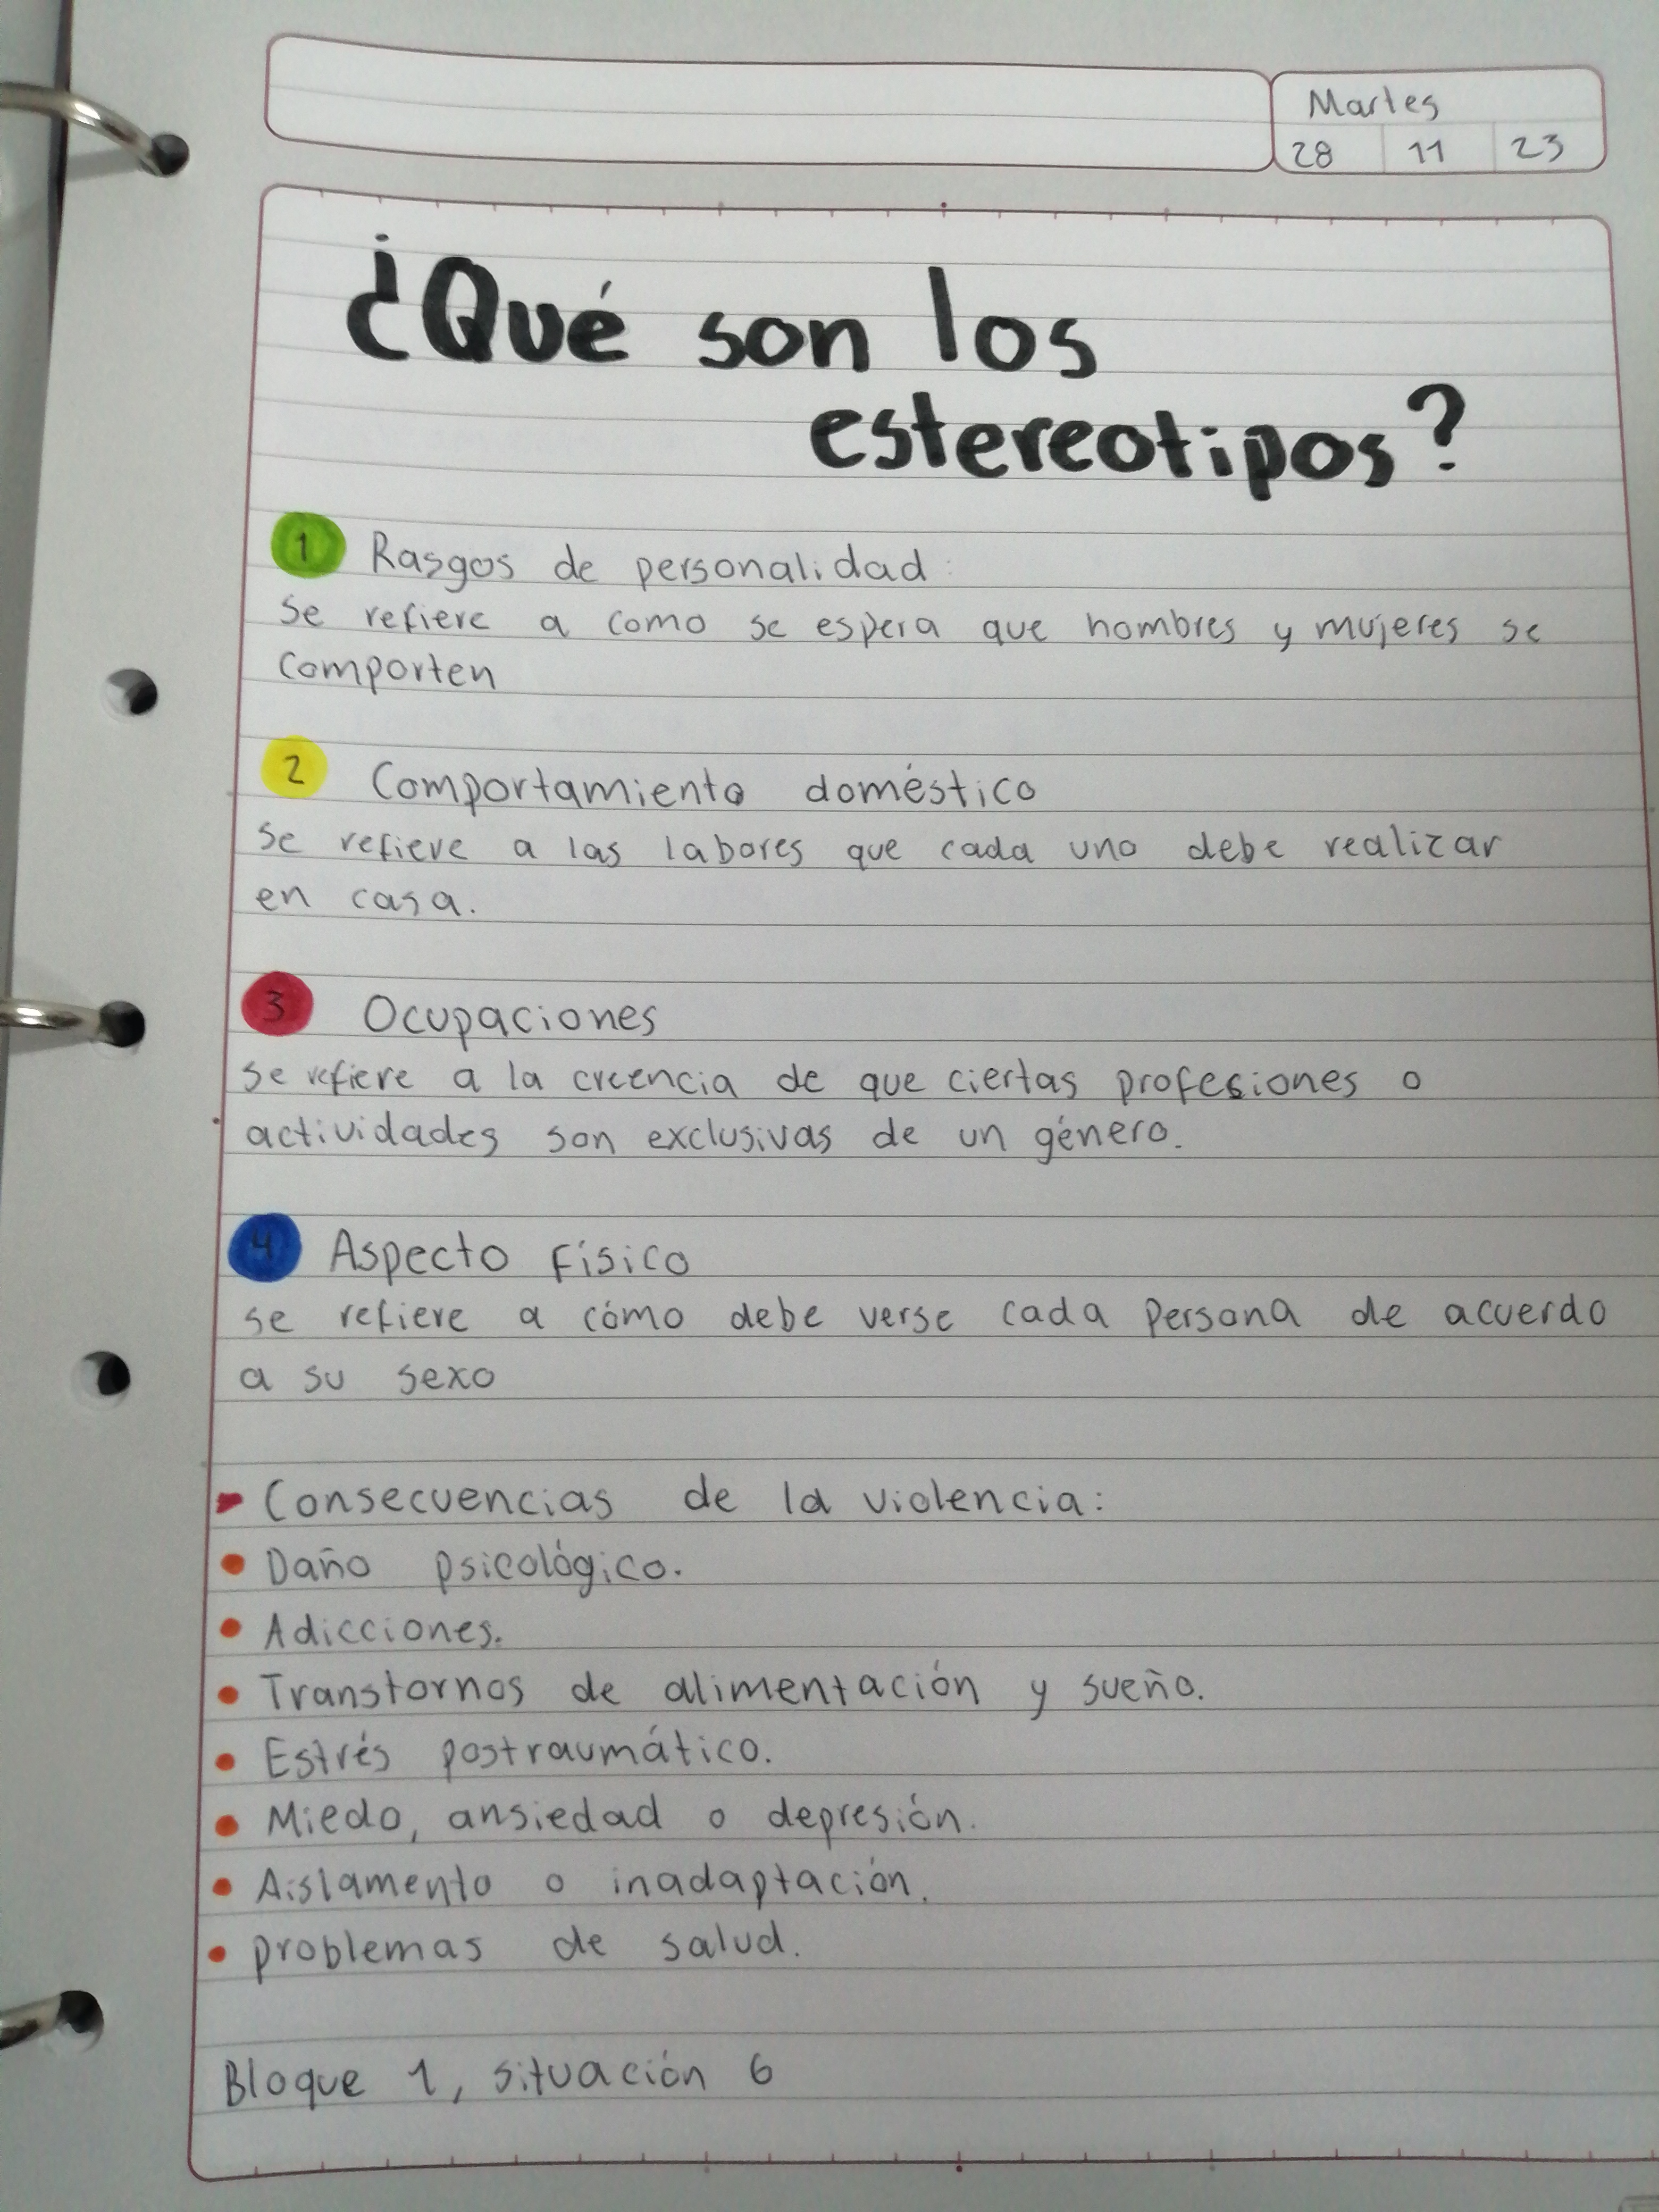 Martes
28 11 23
¿Qué son los
estereotipos?
1 Rasgos de personalidad:
se refiere a como se espera que hombres y mujeres se
comporten
2 Comportamiento doméstico
se refieve a las labores que cada uno debe realizar
en casa.
3 Ocupaciones
se refiere a la creencia de que ciertas profesiones o
actividades son exclusivas de un género.
4 Aspecto Físico
se refiere a cómo debe verse cada persona de acuerdo
a su sexo
- Consecuencias de la violencia:
• Daño psicológico.
• Adicciones.
• Transtornos de alimentación y sueño.
• Estrés postraumático.
• Miedo, ansiedad o depresión.
• Aislamento o inadaptación.
• problemas de salud.
Bloque 1, situación 6